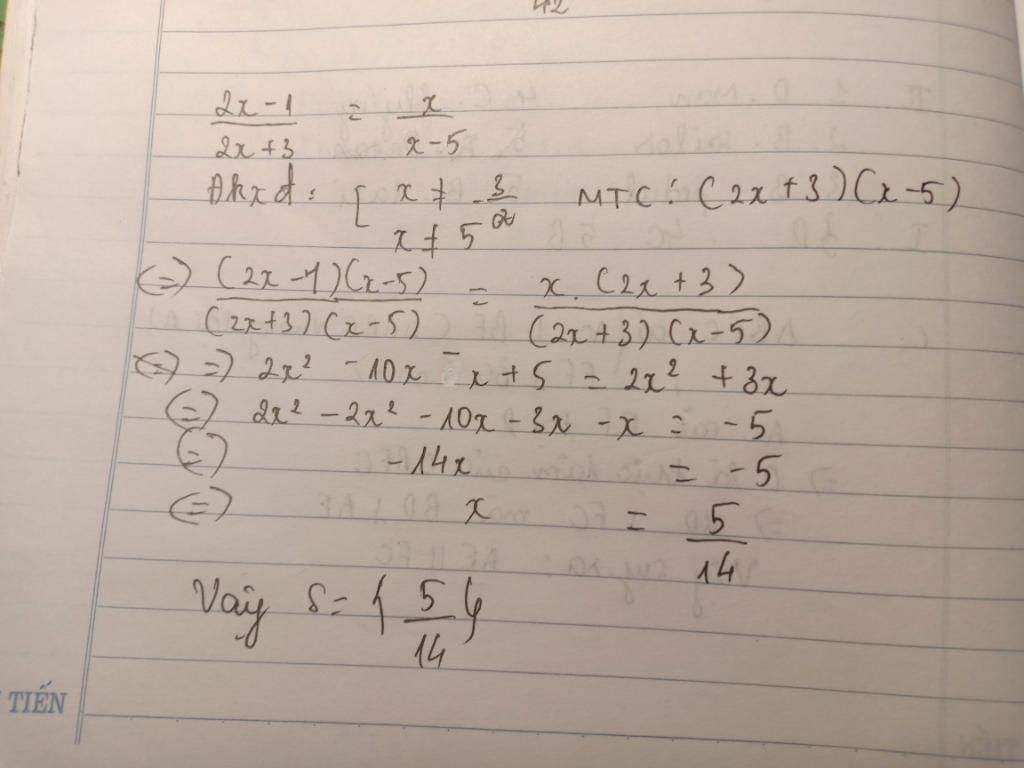 42
2x - 1 / 2x + 3 = x / x - 5
Đkxđ: [ x ≠ -3/2 MTC: (2x + 3)(x - 5)
x ≠ 5
(=) (2x - 1)(x - 5) / (2x + 3)(x - 5) = x. (2x + 3) / (2x + 3)(x - 5)
(=) =) 2x² - 10x - x + 5 = 2x² + 3x
(=) 2x² - 2x² - 10x - 3x - x = -5
(=) -14x = -5
(=) x = 5/14
Vậy S = { 5/14 }
TIẾN